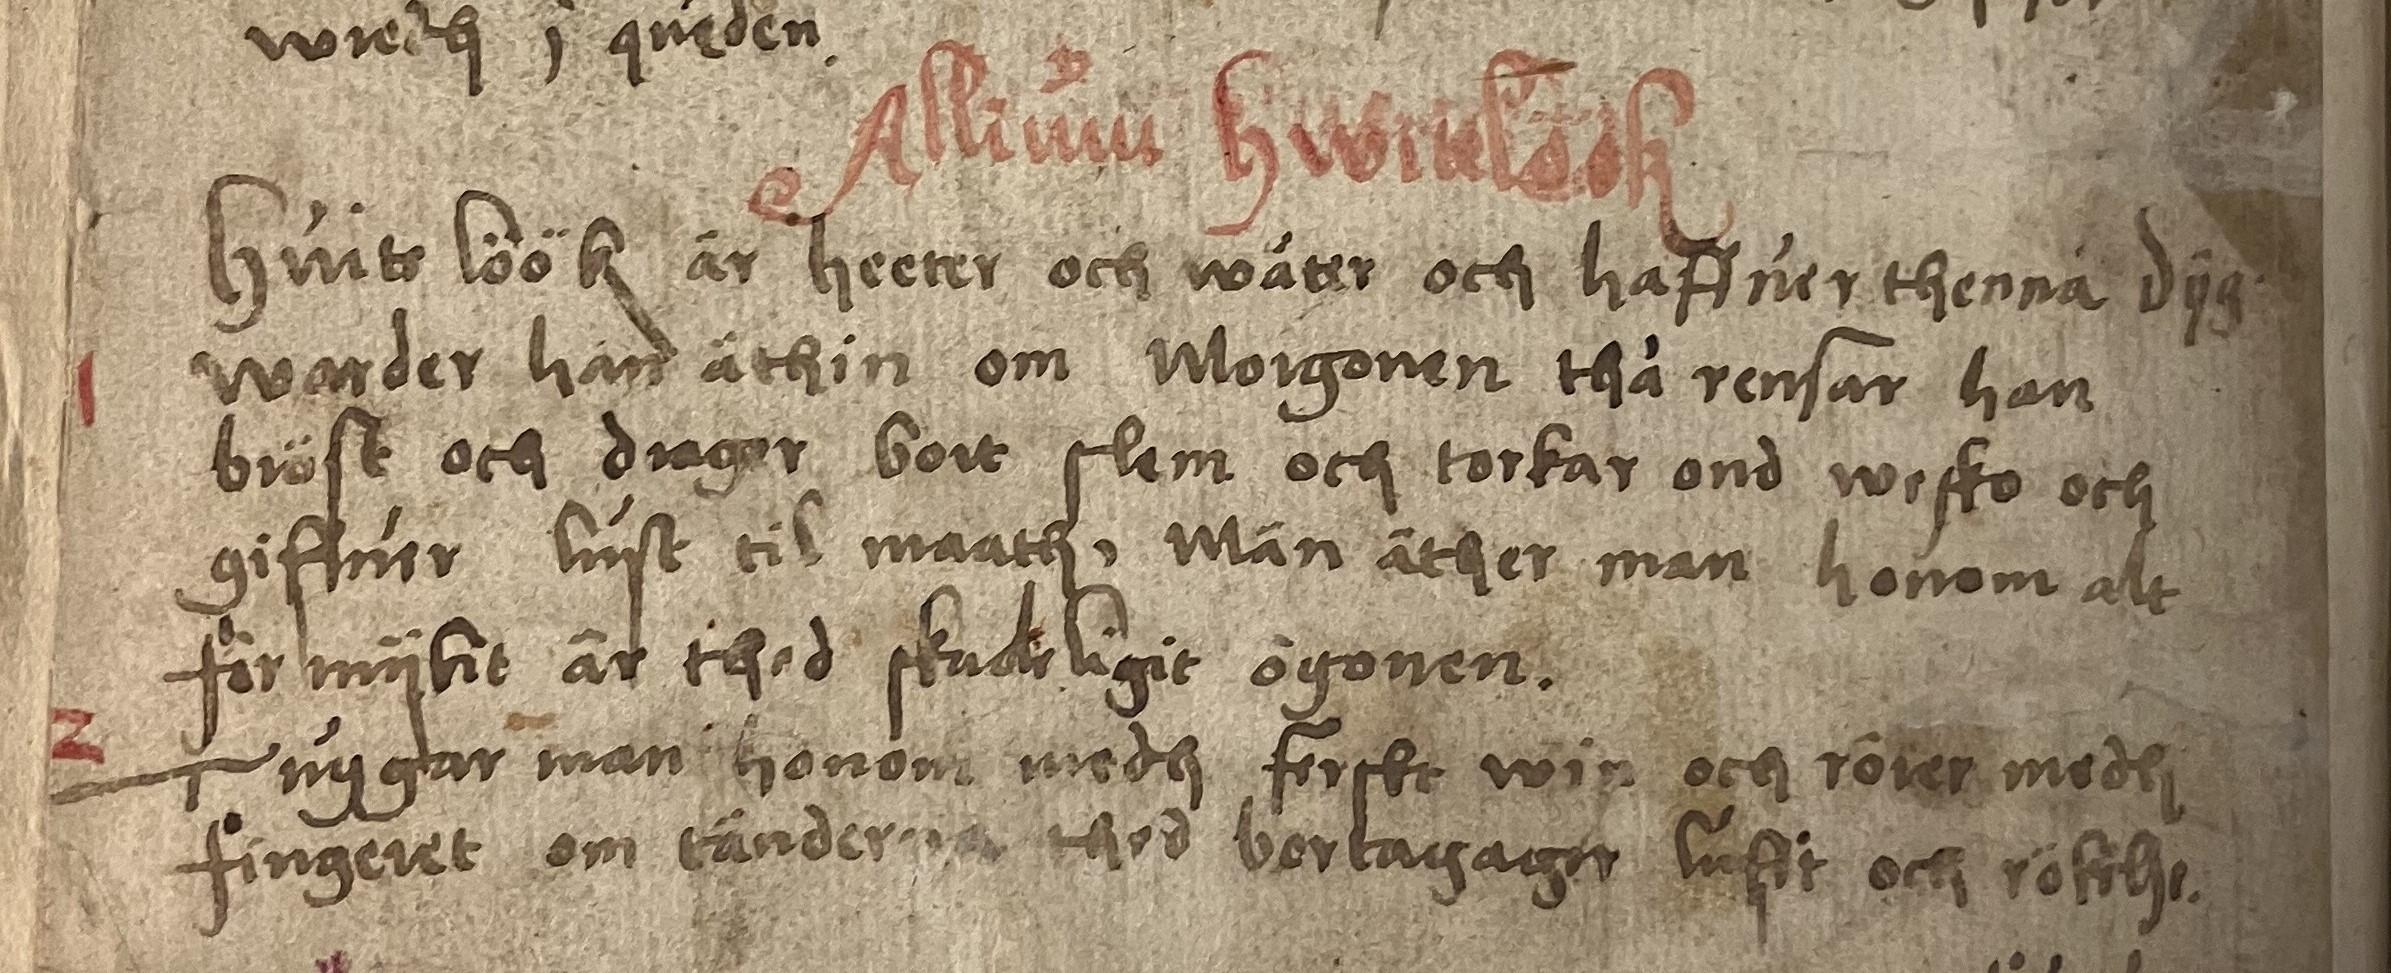 wredh i queden.
Allium Hwitelöök
Huite löök är heeter och wåter och haffuer thenna dijg
1 warder han äthin om Morgonen thå rensar han
bröst och drager bort slem och torkar ond wesko och
giffuer lust til maath, Män äther man honom alt
för mijkit är thed skadeligit ögonen.
2 Tuyggar man honom medh ferskt win och rörer medh
fingeret om tänderna thed bortagager lufft och röthe.